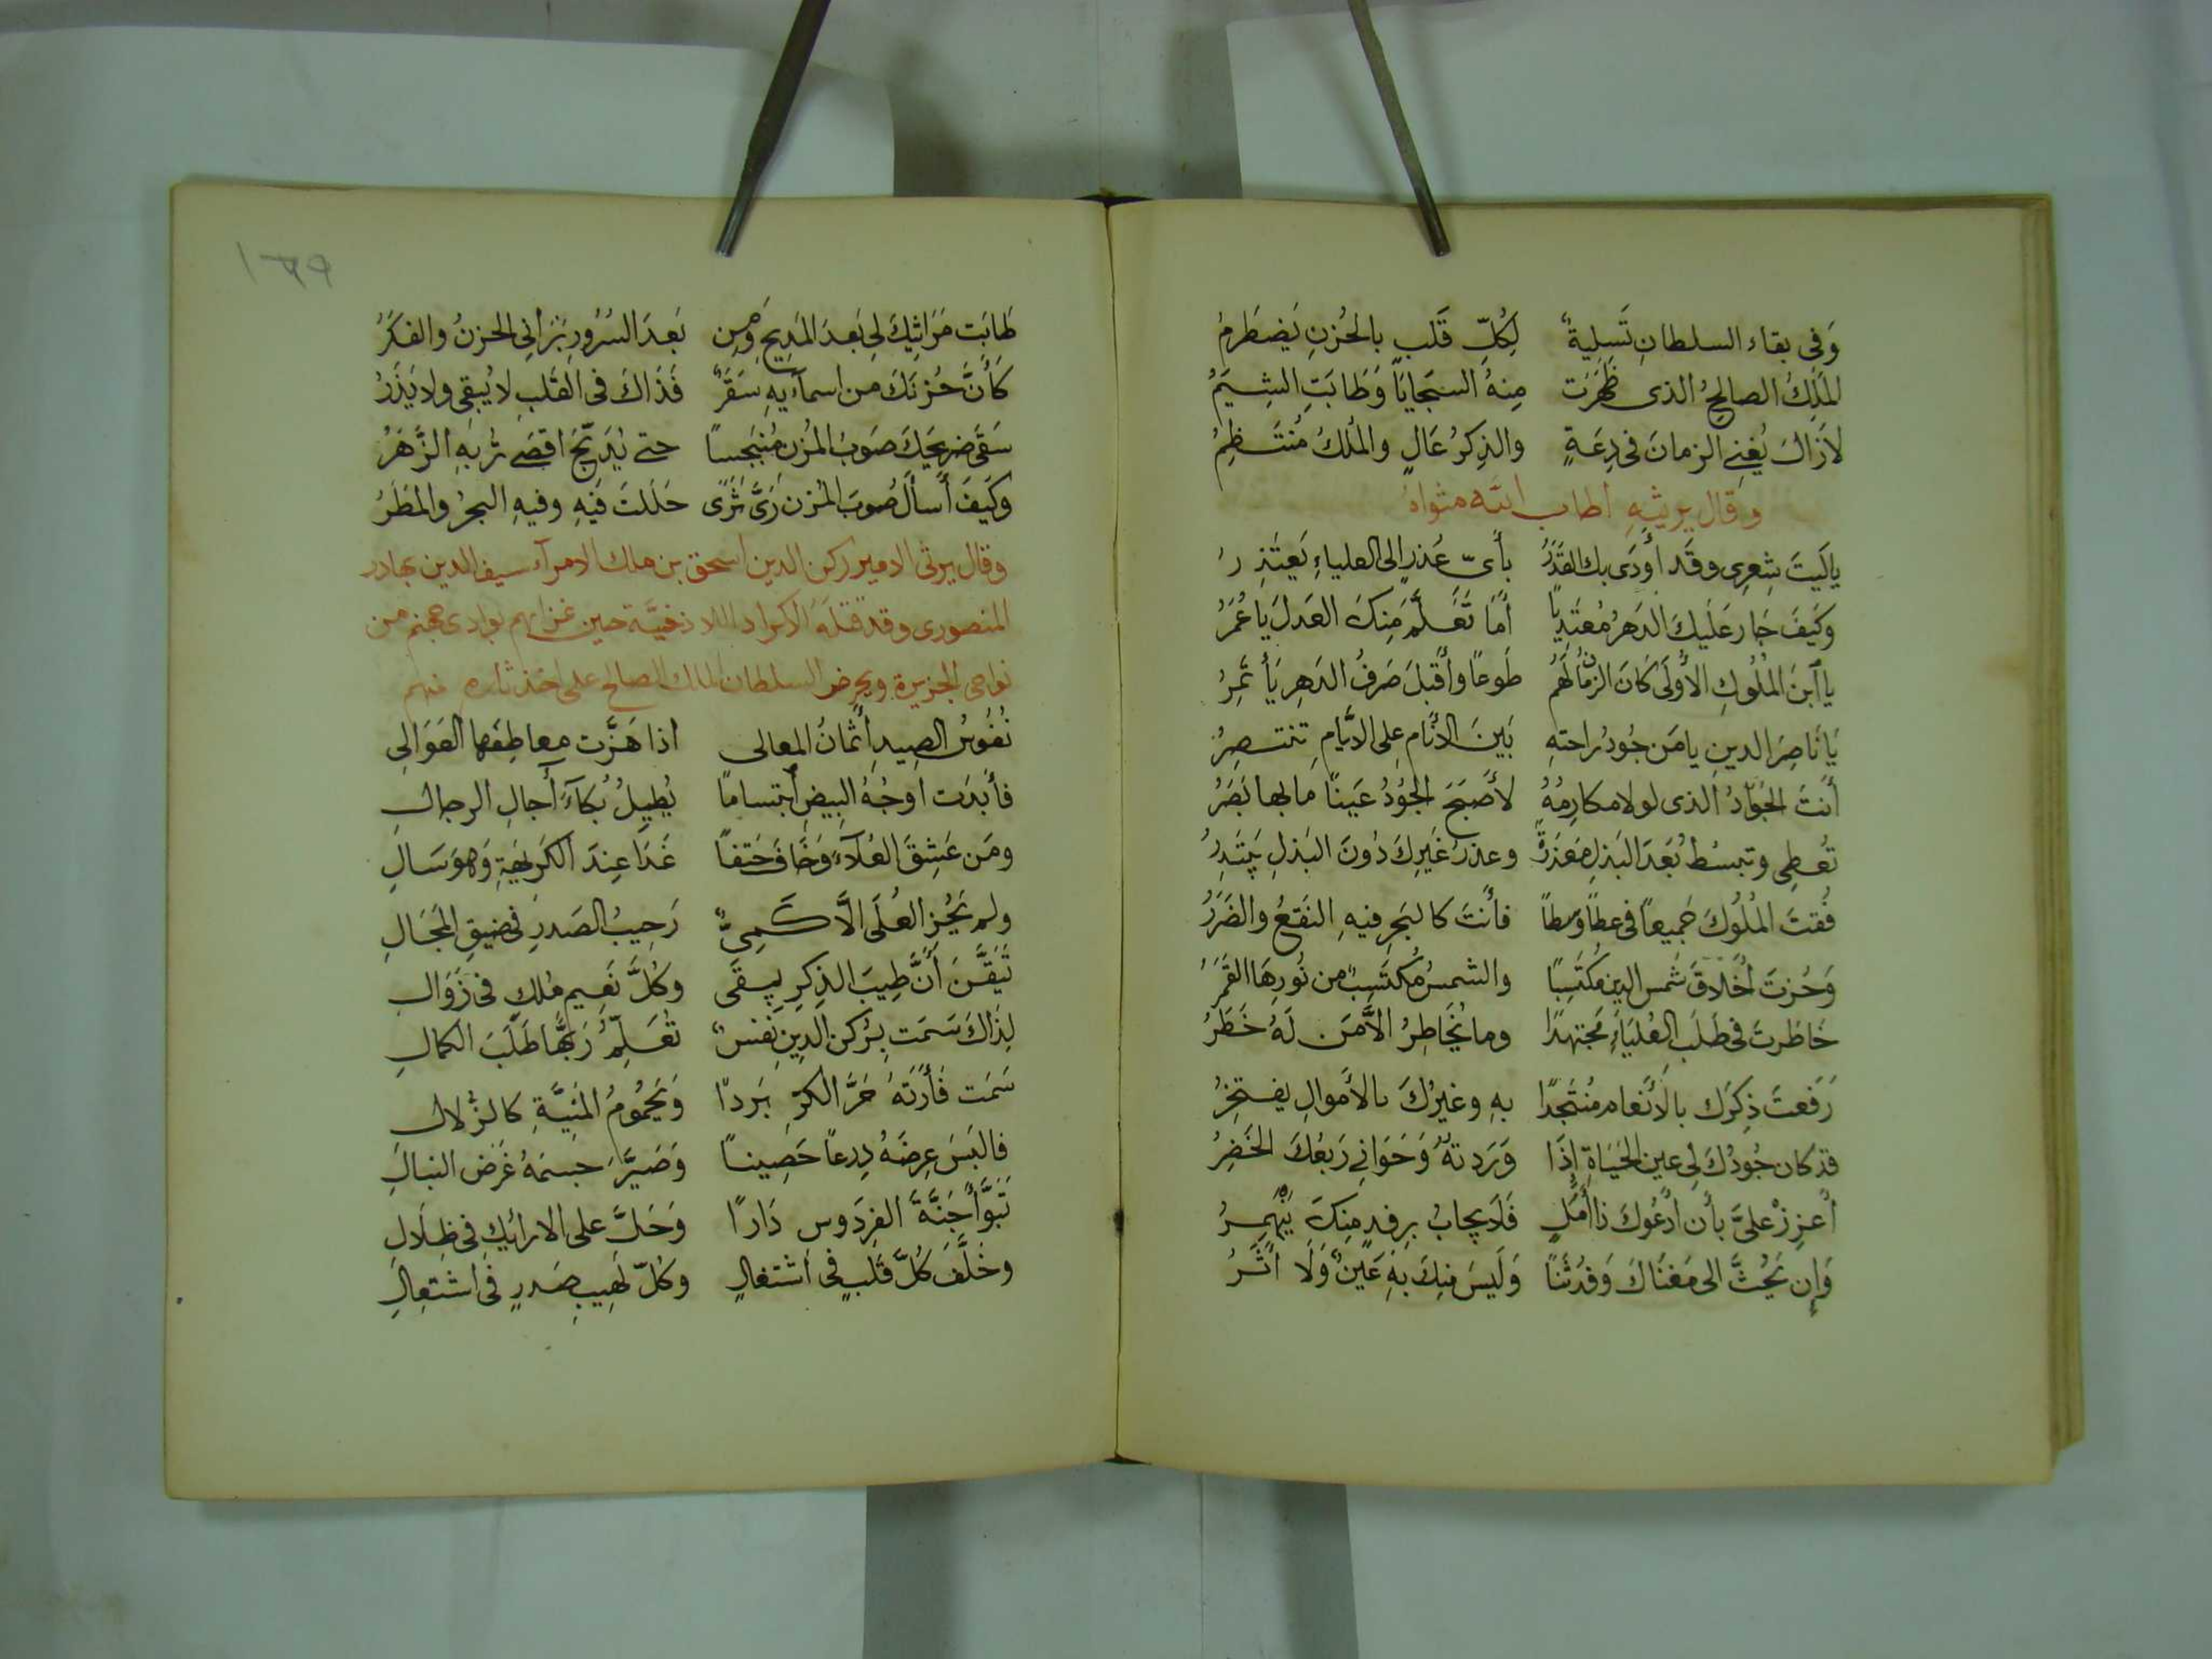 وَفِى بقاء السلطانِ تَسلِيةٌ لِكُلِّ قَلبٍ بالحُزنِ يَضطَرِمُ
المَلِكُ الصالحُ الذى ظَهَرَت مِنهُ السَجايَا وَطَابَتِ الشِيَمُ
لازَالَ يُفنِى الزمانَ فى دِعَةٍ والذِكرُ عَالٍ والمُلكُ مُنتَظِمُ
وقال يرثيهِ اطاب الله مثواهُ
يا لَيتَ شِعرِى وقَد أودَى بك القَدَرُ بأىّ عُذرٍ الى العلياءِ يَعتَذِرُ
وكَيفَ جَارَ عَلَيكَ الدَهرُ مُعتَدِيًا أمَا تَعَلَّمَ مِنكَ العَدلَ يا عُمَرُ
يا ٱبنَ المُلُوكِ الأُولَى كَانَ الزمانُ لَهُم طَوعًا وأقبَلَ صَرفُ الدَهرِ يَأتَمِرُ
يَا نَاصِرَ الدينِ يا مَن جُودُ راحتِهِ بَينَ الأنَامِ على الايَّامِ تنتصِرُ
أنتَ الجَوَادُ الذى لولا مكارِمُهُ لأصبَحَ الجُودُ عَينًا ما بها بَصَرُ
تُعطِى وتبسُطُ بَعدَ البَذلِ مَعذِرَةً وعذرُ غَيرِكَ دُونَ البَذلِ يَبتَدِرُ
فُقتَ المُلُوكَ جَميعًا فى عطًا وسطًا فأنتَ كالبَحرِ فيهِ النَفعُ والضَرَرُ
وَحُزتَ أخلَاقَ شَمسِ الدِينِ مُكتَسِبًا والشمسُ مُكتَسِبٌ من نُورِهَا القَمَرُ
خَاطَرتَ فى طَلَبِ العُليَاءِ مُجتهِدًا وما يُخَاطِرُ الَّا مَن لَهُ خَطَرُ
رَفَعتَ ذِكرَك بالأنعامِ مُنتَجدًا بهِ وغيرُكَ بالأموالِ يفتخِرُ
قد كان جُودُكَ لِى عين الحَيَاةِ إذَا وَرَدتهُ وَحَوَانِى رَبعُكَ الخَضِرُ
أعزِزْ علىَّ بأن أدعُوكَ ذا أمَلٍ فَلَا يجابُ بِرِفدٍ مِنكَ يَنهَمِرُ
وَإن نَحُثَّ الى مَغنَاكَ وَفدُ ثَنًا وَلَيسَ مِنكَ بهِ عَينٌ وَلَا أثَرُ
١٣٩
طَابَت مَرَاثِيكَ لِى بَعدَ المَدِيحِ وَمِن بَعدَ السُرُورِ بَرَانِى الحزنُ والفِكَرُ
كَأنَّ حُزنَكَ من اسمآئِهِ سَقَرٌ فَذَاكَ فى القَلبِ لا يُبقِى ولا يَذَرُ
سَقَى ضرِيحَكَ صَوبُ المُزنِ مُنبَجِسًا حتى يُدَبّجَ اقصَى تُربِهِ الزَهَرُ
وكَيفَ أسألُ صَوبَ المُزن رَىَّ ثَرًى حَلَلتَ فيهِ وفيهِ البحرُ والمَطَرُ
وقال يرثى الامير ركن الدين اسحق بن ملك الامرآء سيف الدين بهادر
المنصورى وقد قتلَهُ الاكراد اللاذخيَّة حين غزاهم بوادى جهنم من
نواحى الجزيرةِ ويحرض السلطان الملك الصالح على اخذ ثارهِ منهم
نُفُوسُ الصِيدِ أثمَانُ المعالى اذا هَزَّت معاطِفَها العَوَالِى
فأبدَت اوجُهُ البيضِ ٱبتساما يُطِيلُ بُكآءَ آجالِ الرجالِ
ومَن عَشِقَ العُلآءَ وَخَافَ حَتفًا غَدَا عِندَ الكَرِيهَةِ وَهوَ سَالِ
ولم يَحُزِ العُلَى الَّا كَمِىٌّ رَحِيبُ الصَدرِ فى ضِيقِ المَجَالِ
تَيَقَّنَ أنَّ طِيبَ الذِكرِ يبقَى وكُلَّ نَعِيمِ مُلكٍ فى زَوَالِ
لِذَاكَ سَمَت بِرُكنِ الدِينِ نَفسٌ تُعَلِّمُ رَبَّهَا طَلَبَ الكمالِ
سَمَت فَأرَتهُ حَرَّ الكَرِّ بَردًا وَيَحمُومُ المَنِيَّةِ كالزُلالِ
فالبَسَ عِرضَهُ دِرعًا حَصِينًا وَصَيَّرَ جسمَهُ غَرَض النبالِ
تَبَوَّأ جَنَّةَ الفِردَوسِ دَارًا وَحَلَّ على الارائِكِ فى ظِلَالِ
وخَلَّفَ كُلَّ قَلبٍ فى اشتغالٍ وكُلّ لَهِيبِ صَدرٍ فى اشتعالِ